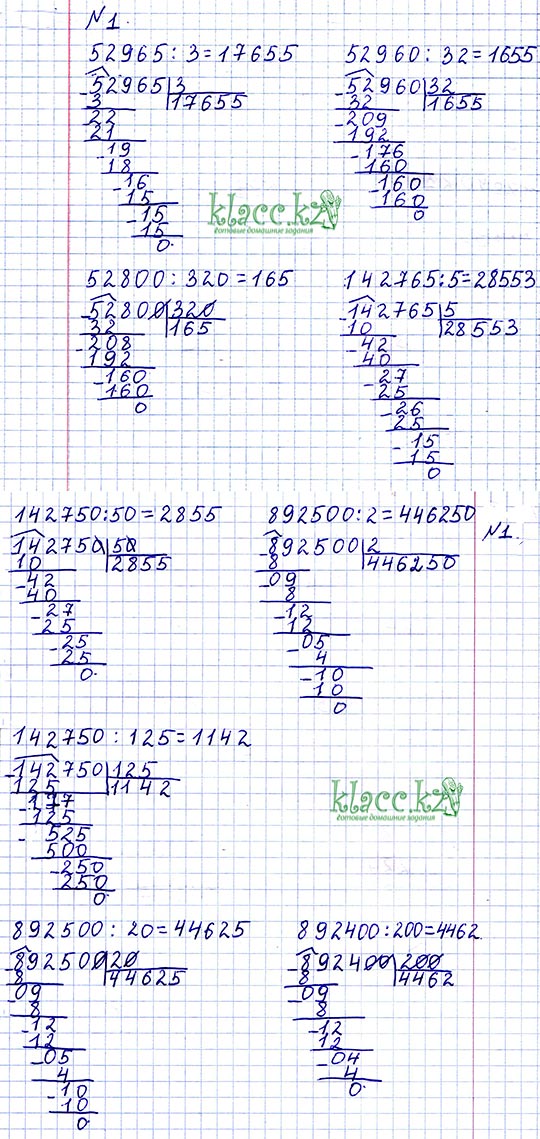 N1.
52965 : 3 = 17655
52965 3
3 17655
22
21
19
18
16
15
15
15
0.
52960 : 32 = 1655
52960 32
32 1655
209
192
176
160
160
160
0
klacc.kz
готовые домашние задания
52800 : 320 = 165
52800 320
32 165
208
192
160
160
0
142765 : 5 = 28553
142765 5
10 28553
42
40
27
25
26
25
15
15
0
142750 : 50 = 2855
142750 50
10 2855
42
40
27
25
25
25
0.
892500 : 2 = 446250
892500 2
8 446250
09
8
12
12
05
4
10
10
0
N1.
142750 : 125 = 1142
142750 125
125 1142
177
125
525
500
250
250
0
klacc.kz
готовые домашние задания
892500 : 20 = 44625
892500 20
8 44625
09
8
12
12
05
4
10
10
0
892400 : 200 = 4462.
892400 200
8 4462
09
8
12
12
04
4
0.